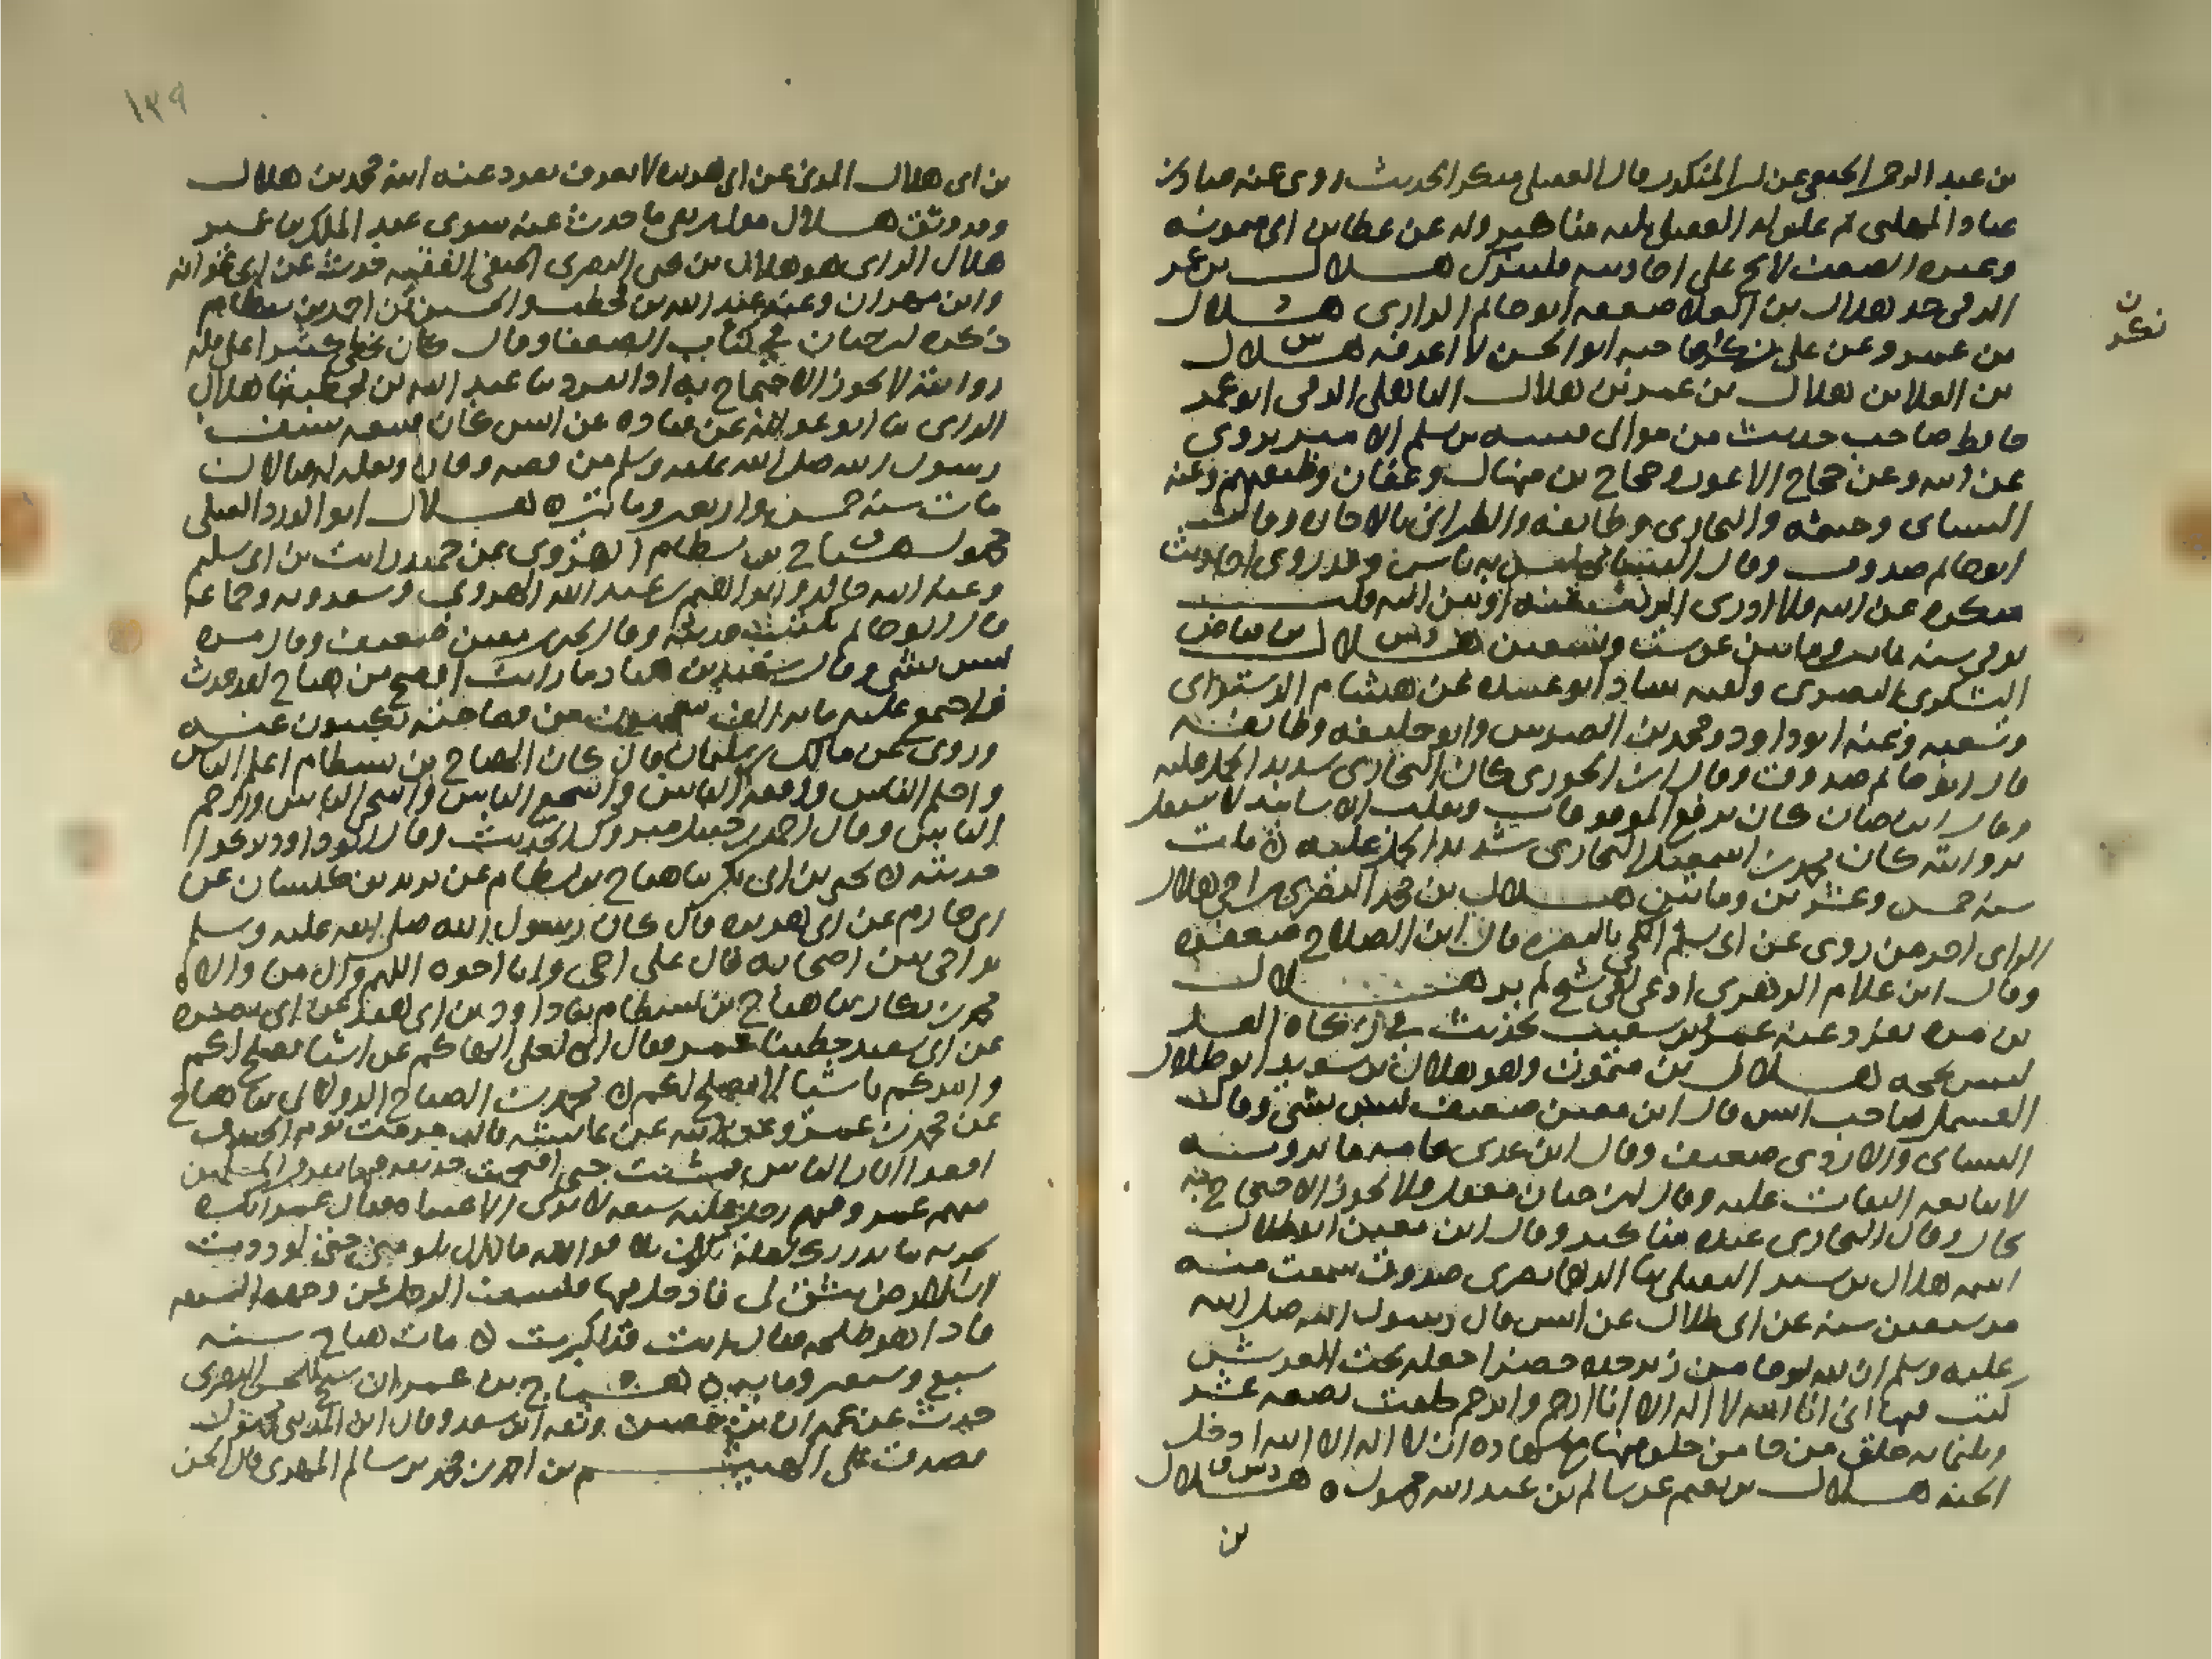 بن عبد الرحمن الحنفي عن ابن المنكدر قال العقيلي منكر الحديث روى عنه عباد بن
عباد المهلبي ثم ساق له العقيلي ثلاثة مناكير وله عن عطاء بن ابي ميمونة
وغيره الضعف لائح على احاديثه فليترك هلال بن عمر
الرقي جد هلال بن العلاء ضعفه ابو حاتم الرازي هلال
بن عمرو عن علي نكرة ما حدث ابو الحسن لا اعرفه هلال
نكرة
بن العلاء بن هلال بن عمر بن هلال الباهلي الرقي ابو عمر
حافظ صاحب حديث من موالي قتيبة بن مسلم الامير يروي
عن ابيه وعن حجاج الاعور وحجاج بن منهال وعفان وطبقتهم وعنه
النسائي وخيثمة والنجاد وطائفة والطبراني بالاجازة وقال
ابو حاتم صدوق وقال النسائي ليس به باس وقد روى احاديث
منكرة عن ابيه فلا ادري الريب منه او من ابيه قلت
توفي سنة ثمانين ومائتين عن ست وتسعين هلال بن فياض
اليشكري البصري ولقبه شاذ ابو عبيدة عن هشام الدستوائي
وشعبة وعنه ابو داود ومحمد بن الضريس وابو خليفة وطائفة
قال ابو حاتم صدوق وقال ابن الجوزي كان البخاري شديد الحمل عليه
وقال ابن حبان كان يرفع الموقوفات ويقلب الاسانيد لا يشتغل
بروايته كان محمد بن اسمعيل البخاري شديد الحمل عليه ن مات
سنة خمس وعشرين ومائتين هلال بن محمد البصري ابن اخي هلال
الراي اخر من روى عن ابي مسلم الكجي بالبصرة قال ابن الصلاح ضعفوه
وقال ابن غلام الزهري ادعى لقي شيخ لم يره هلال
بن مرة تفرد عنه عمرو بن شعيب بحديث في زكاة العسل
ليس بحجة هلال بن ميمون وهو هلال بن سويد ابو ظلال
القسملي صاحب انس قال ابن معين ضعيف ليس بشي وقال
النسائي والازدي ضعيف وقال ابن عدي عامة ما يرويه
لا يتابعه الثقات عليه وقال ابن حبان مغفل لا يجوز الاحتجاج به
بحال وقال البخاري عنده مناكير وقال ابن معين ابو ظلال
اسمه هلال بن بشر العقيلي صدوق سمعت منه
مذ سبعين سنة عن ابي ظلال عن انس قال رسول الله صلى الله
عليه وسلم ان لله لوحا من زبرجدة خضراء جعله تحت العرش
كتب فيه اني انا الله لا اله الا انا ارحم وارحم خلقت بضعة عشر
وثلثمائة خلق من جاء من خلق منها مع شهادة ان لا اله الا الله ادخل
الجنة هلال بن نعيم عن سالم بن عبد الله مجهول ه هلال
بن
١٣٩
بن ابي هلال المدني عن ابي هريرة لا يعرف تفرد عنه ابنه محمد بن هلال
وقد وثق هلال مولى ربعي ما حدث عنه سوى عبد الملك بن عمير
هلال الراي هو هلال بن يحيى البصري الحنفي الفقيه حدث عن ابي عوانة
وابن مهران وعنه عبد الله بن قحطبة والحسين بن احمد بن بسطام
ذكره ابن حبان في كتاب الضعفاء وقال كان يخطئ كثيرا على قلة
روايته لا يجوز الاحتجاج به اذا انفرد ثنا عبد الله بن قحطبة ثنا هلال
الراي ثنا ابو عوانة عن قتادة عن انس كان قبيعة سيف
رسول الله صلى الله عليه وسلم من فضة وكان ونعله له قبالان
مات سنة خمس واربعين ومائتين ه هلال ابو الورد العتكي
مجهول هياج بن بسطام الهروي عن حميد وليث بن ابي سليم
وعنه ابنه خالد وابو القسم بن عبد الله الهروي وسعدويه وجماعة
قال ابو حاتم يكتب حديثه وقال يحيى بن معين ضعيف وقال مرة
ليس بشي وقال سعيد بن هناد ما رايت افصح من هياج لقد حدث
فاجتمع عليه مائة الف من فصاحته يعجبون منه
وروى عن مالك بن سليمان قال كان الهياج بن بسطام اعلم الناس
واحلم الناس وافقه الناس واشجع الناس واسخى الناس وارحم
الناس وقال احمد بن حنبل متروك الحديث وقال ابو داود تركوا
حديثه ن يحيى بن ابي بكير ثنا هياج بن بسطام عن يزيد بن كيسان عن
ابي حازم عن ابي هريرة قال كان رسول الله صلى الله عليه وسلم
يواخي بين اصحابه قال علي اخي وانا اخوه اللهم وال من والاه
محمد بن بكار ثنا هياج بن بسطام ثنا داود بن ابي هند عن ابي نضرة
عن ابي سعيد خطبنا عمر فقال اني لعلي انهاكم عن اشيا تصلح لكم
وامركم باشيا لا تصلح لكم ن محمد بن الصباح الدولابي ثنا هياج
عن محمد بن عمرو عن ابيه عن عائشة قالت خرجت يوم الخندق
اقفو اثار الناس فمشيت حتى اقتحمت حديقة فيها نفر من المسلمين
فيهم عمر وفيهم رجل عليه تسبغة لا يرى الا عيناه فقال عمر انك
لجرية ما يدريك لعله يكون بلاء فوالله ما زال يلومني حتى وددت
ان الارض تنشق لي فادخل فيها فكشف الرجل عن وجهه التسبغة
فاذا هو طلحة فقال انك قد اكثرت ن مات هياج سنة
سبع وسبعين ومائة ه هياج بن عمران شيخ للحسن البصري
حدث عن عمران بن حصين وثقه ابن سعد وقال ابن المديني مجهول
فصدق علي الهيثم بن احمد بن محمد بن سالم المهري قال الحسن